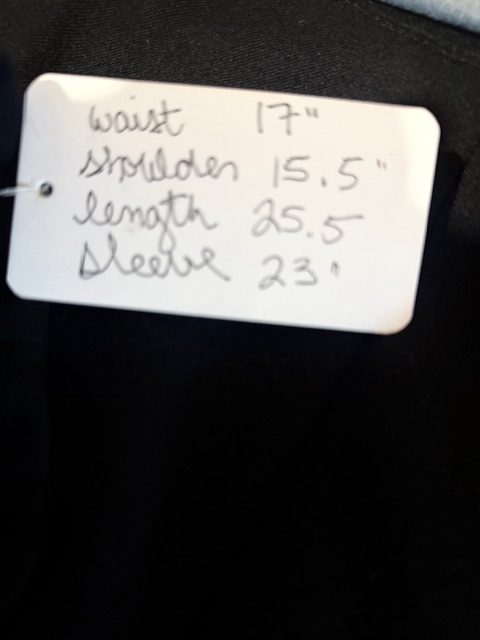 waist 17"
shoulder 15.5"
length 25.5
sleeve 23"